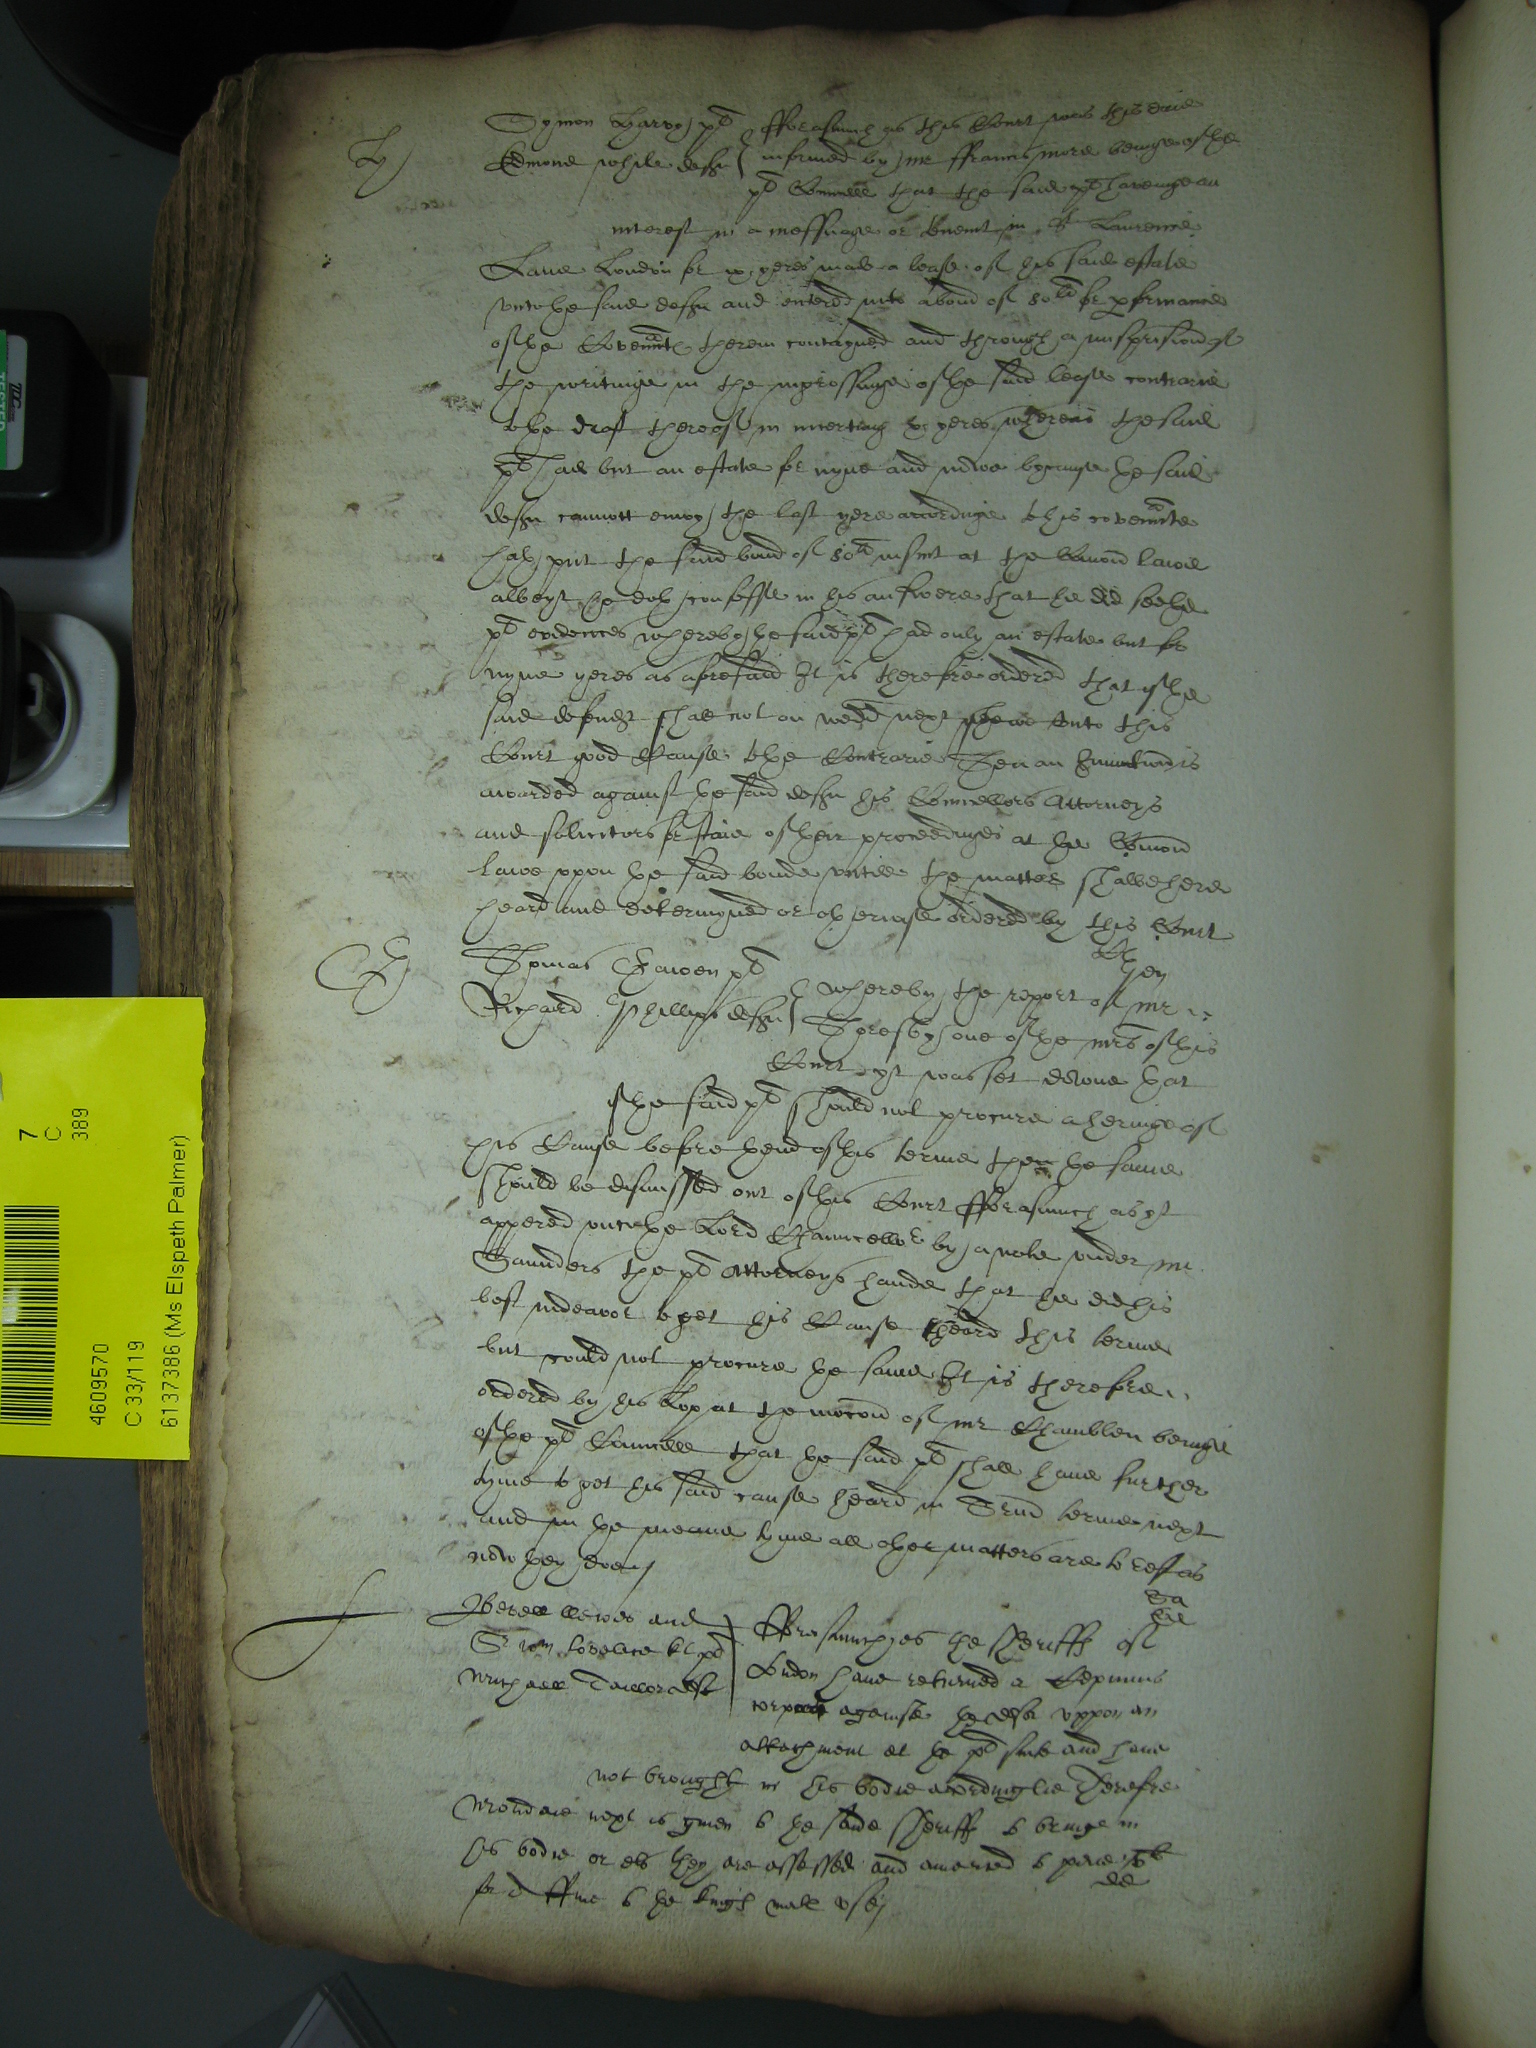 Symon Harvy plt
Edmond while deft
fforasmuch as this Court was this daie
informed by mr ffrancis more beinge of the
plt Councell that the said plt haveinge an
interest in a messuage or tenemt in St Laurence
Lane London for ix yeres made a lease of his said estate
unto the said deft and entered into a bond of 80li for pformance
of the Covennts therein contayned and through a misprision of
the writinge in the ingrossinge of the said lease contrarie
to the draft thereof in inserting x yeres whereas the said
plt had but an estate for nyne and nowe because the said
deft cannott enioy the last yere accordinge to his covennte
hath put the said bond of 80li in suit at the Comon lawe
albeyt he doth confesse in his answere that he did see the
plt evidences whereby the said plt had only an estate but for
nyne yeres as aforesaid It is therefore ordered that yf the
said defendt shall not on wedd next shewe unto this
Court good Cause to the Contrarie Then an Iniunction is
awarded against the said deft his Councellors Attorneys
and solicitors for staie of their proceedinges at the Comon
lawe uppon the said bonde untill the matter shalbe here
heard and determyned or otherwise ordered by this Court
Thomas plt
Richard Phillips deft
whereby the report of mr
Thresby one of the mrs of this
Court yt was set downe that
yf the said plt should not procure a heringe of
this Cause before thend of this terme then the same
should be dismissed out of this Court fforasmuch as yt
appered unto the Lord Chauncellor by a note under mr
Saunders the plt Attorneys hande that he did his
best indeavor to get his Cause heard this terme
but could not procure the same It is therefore
ordered by his Lop at the mocon of mr Chamblen beinge
of the plt Councell that the said plt shall have further
tyme to get his said cause heard in Trin terme next
and in the meane tyme all other matters are to rest as
now they doe
lewes and
Sr Wm lovelace kt plt
michaell Taillor deft
fforasmuch as the Sheriffs of
London have returned a Cepimus
corpus against the deft uppon an
attachment at the plt suite and have
not brought in his bodie accordinglie Therefore
mondaie next is given to the saide Sheriffs to bringe in
his bodie or els they are assessed and amerced to paie
for a ffine to the kings matie use
7
C
389
4609570
C 33/119
6137386 (Ms Elspeth Palmer)
TESTED